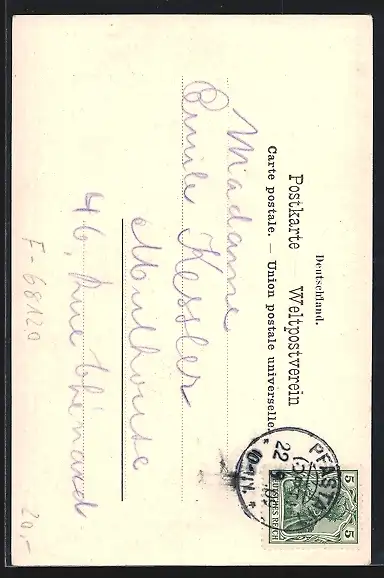 Deutschland.
Postkarte — Weltpostverein
Carte postale. — Union postale universelle.
Madame
Emile Kessler
Mulhouse
46, Rue Thénard
PFASTATT
22
5 5
DEUTSCHES REICH
F-68120
20,-